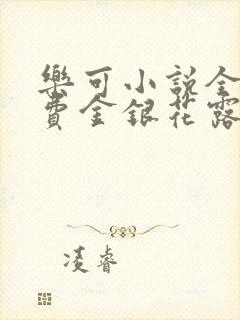 樂可小說全
費金銀花露
凌睿